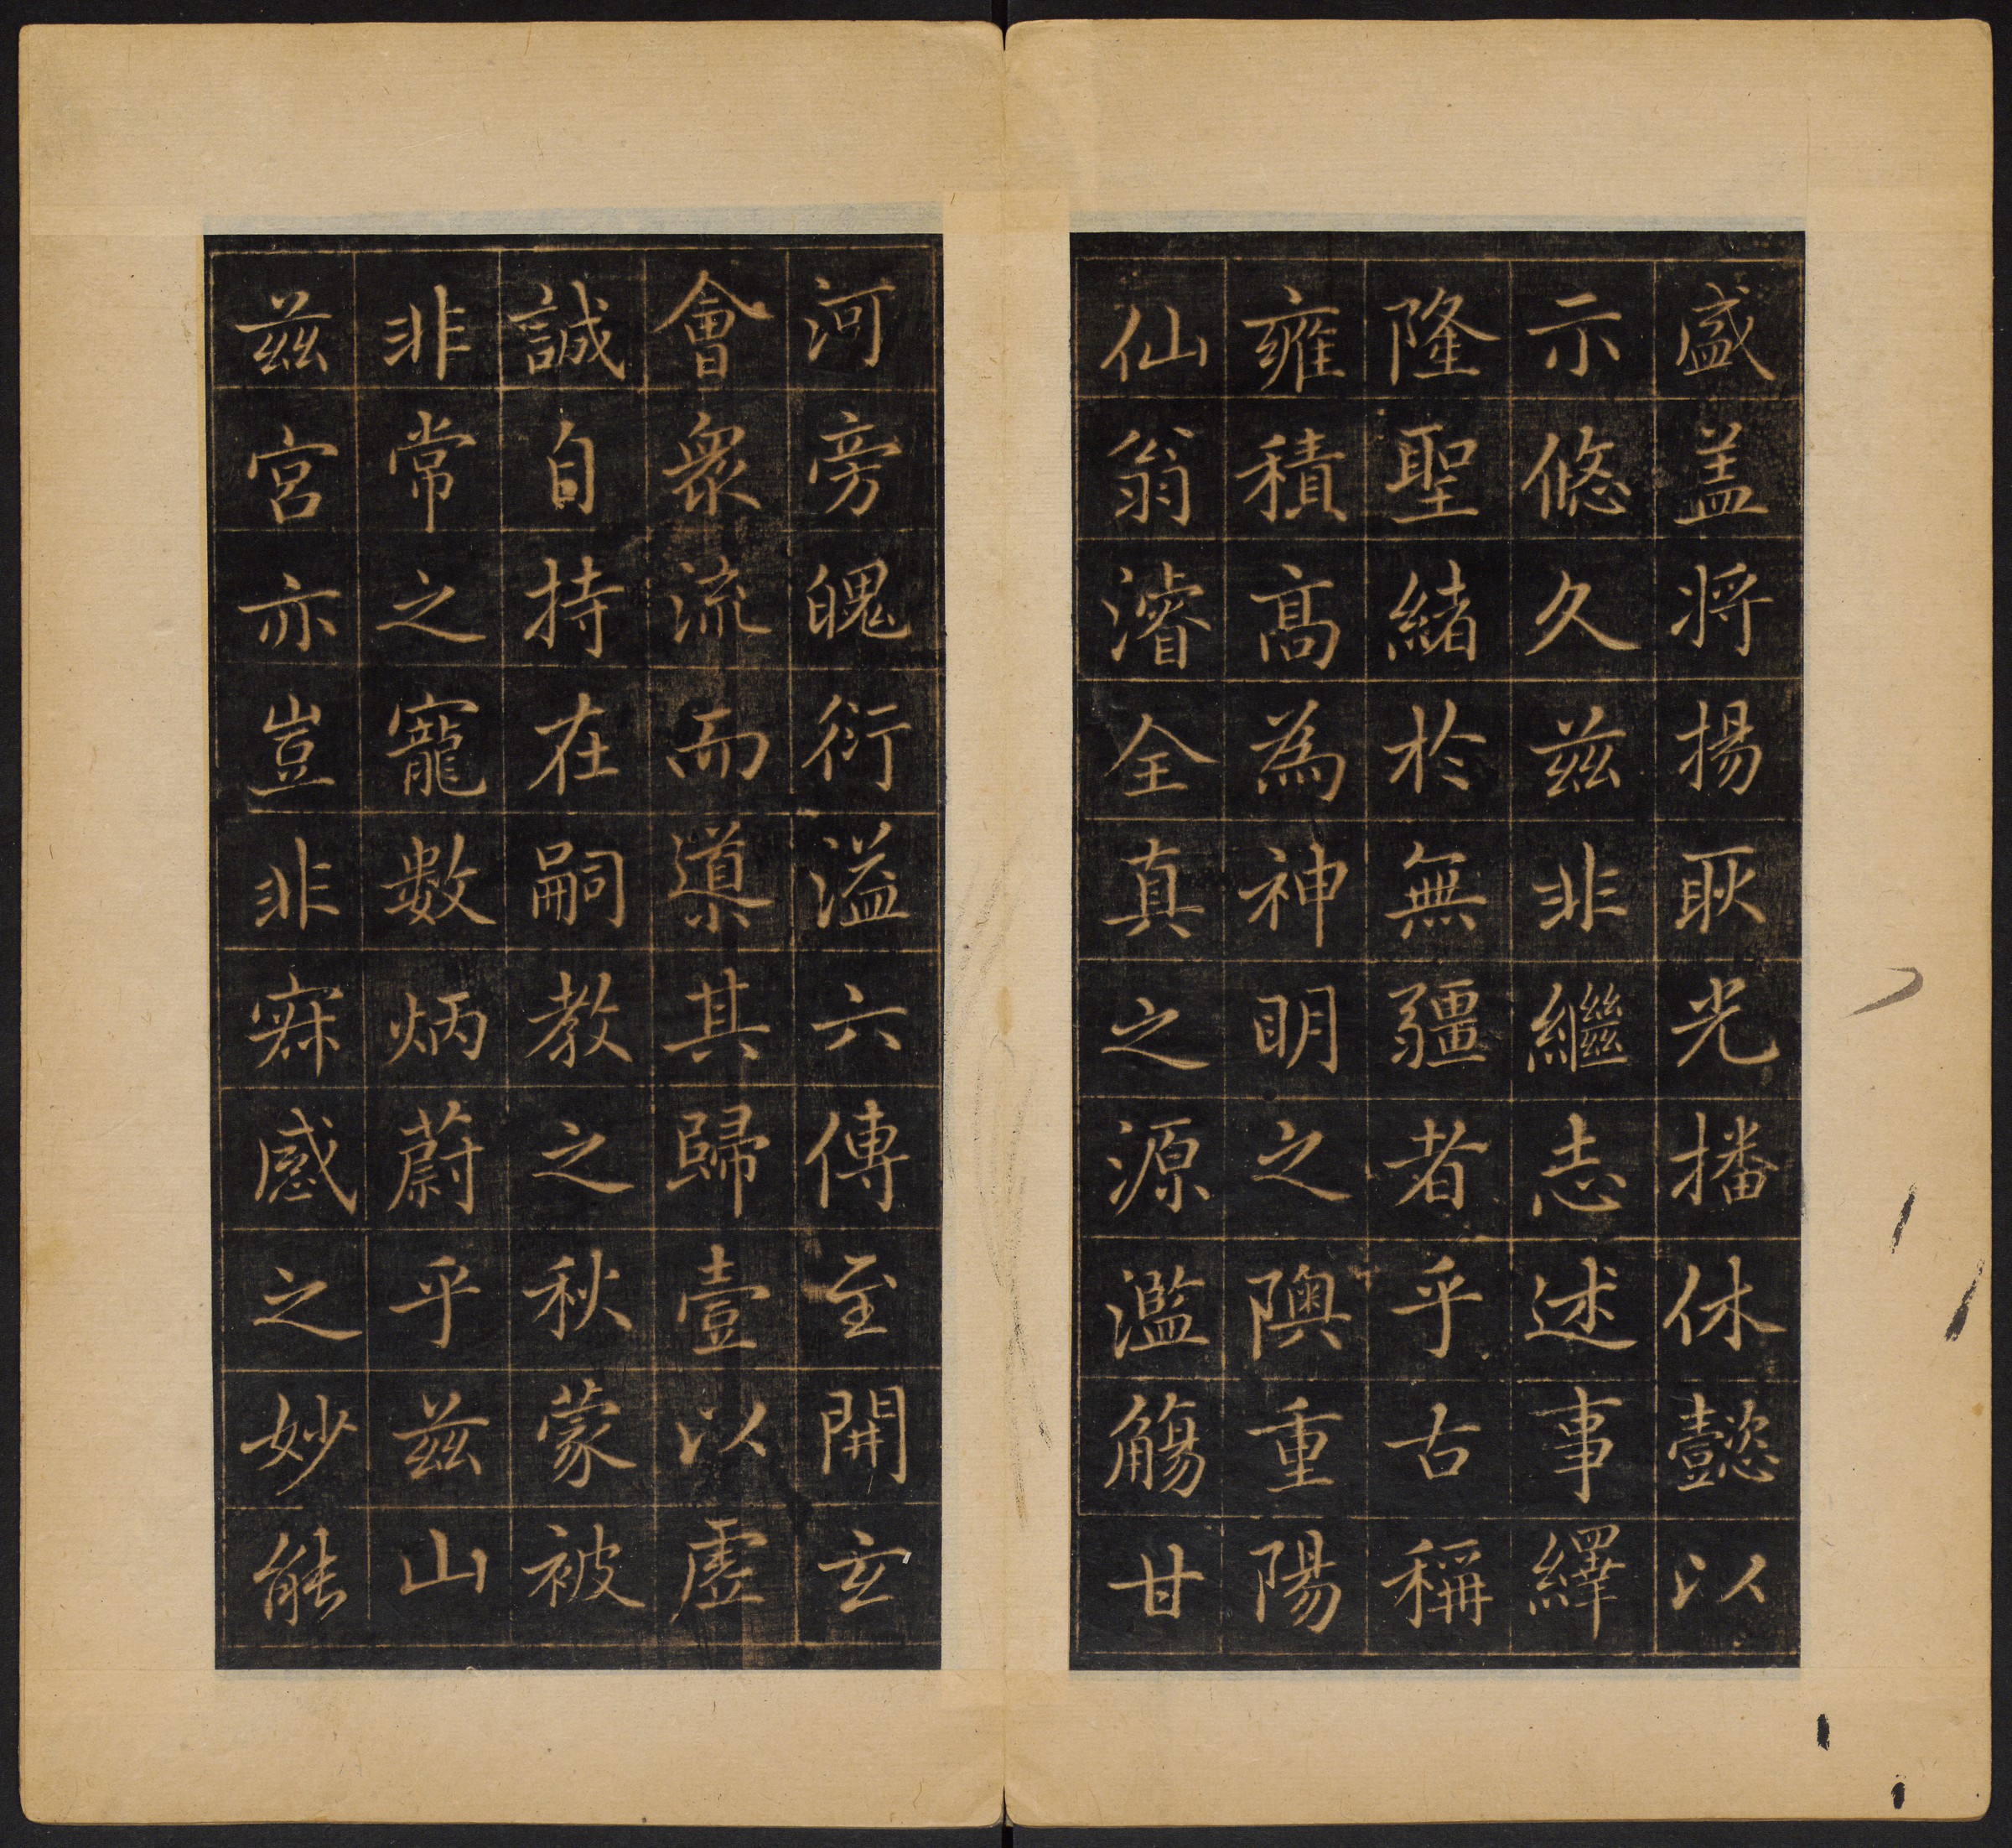 盛盖将揚耿光播休懿以
示悠久兹非繼志述事繹
隆聖緒於無疆者乎古稱
雍積高為神明之隩重陽
仙翁濬全真之源濫觴甘
河旁魄衍溢六傳至開玄
會衆流而導其歸壹以虛
誠自持在嗣教之秋蒙被
非常之寵數炳蔚乎兹山
兹宮亦豈非寂感之妙能